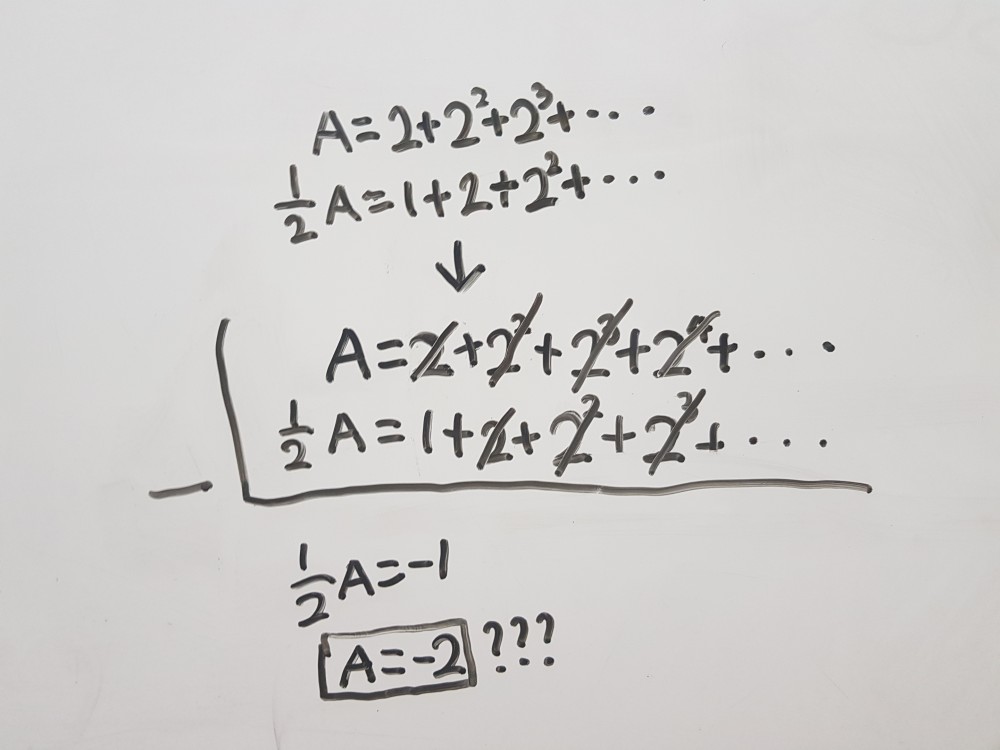 A=2+2²+2³+···
½A=1+2+2²+···
↓
A=2+2²+2³+2⁴+···
½A=1+2+2²+2³+···
—
½A=-1
A=-2???